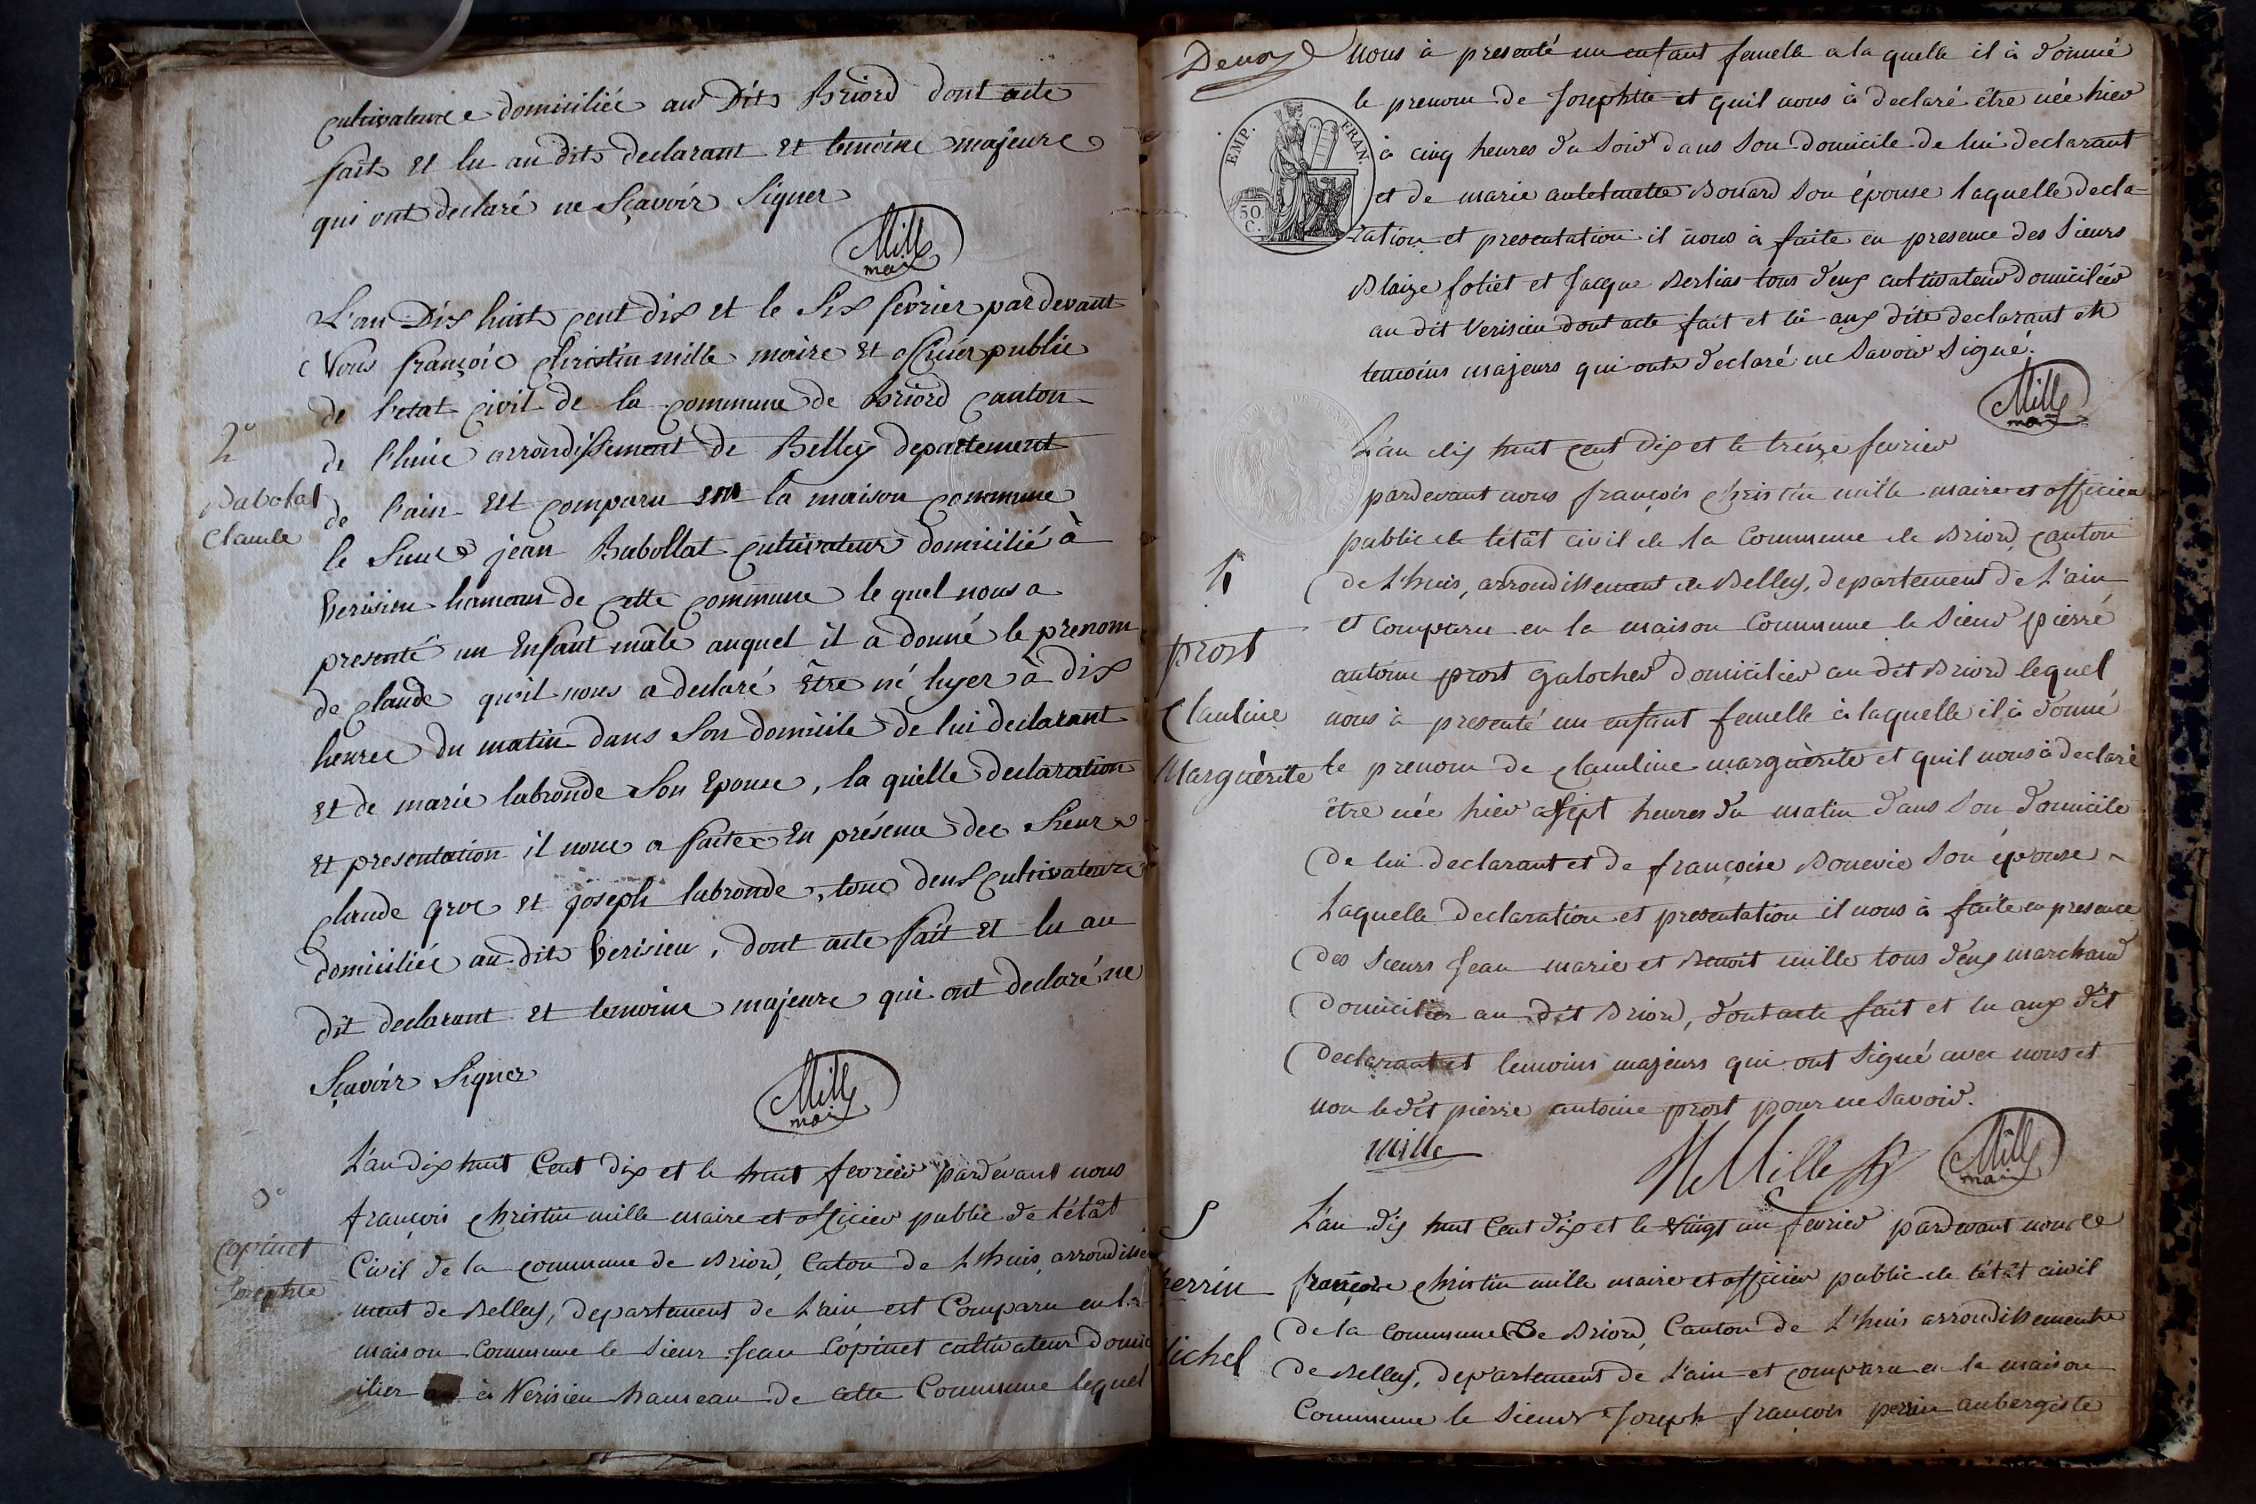 cultivateurs domiciliés au Dit Briord dont acte
fait et lu au dits declarant et temoins majeurs
qui ont declaré ne Sçavoir Signer
Mille
maire
L'an Dix huit cent dix et le six fevrier par devant
Nous françois christin mille maire et officier public
de l'etat civil de la commune de Briord canton
2°
de lhuis arrondissement de Belley departement
Babolat
de l'ain Est comparu en la maison commune
Claude
le Sieur jean Babollat cultivateur domicilié à
Verisieu hameau de cette commune le quel nous a
presenté un Enfant mâle auquel il a donné le prenom
de claude qu'il nous a declaré être né hyer à dix
heures du matin dans son domicile de lui declarant
et de marie labronde son Epouse, la quelle declaration
et presentation il nous a faite En présence des Sieurs
claude gros et joseph labronde, tous deux cultivateurs
domiciliés au dit Verisieu, dont acte fait et lu au
dit declarant et temoins majeurs qui ont declaré ne
Sçavoir Signer
Mille
maire
L'an dix huit Cent dix et le huit fevrier pardevant nous
3°
françois christin mille maire et officier public de l'étât
Copinet
Civil de la commune de Briord, Caton de Lhuis, arrondisse
Josephte
ment de Belley, departement de L'ain est Comparu en la
maison Commune le Sieur Jean Copinet cultivateur domic
ilier à Verisieu hameau de cette Commune lequel
Deux
nous à presenté un enfant femelle a la quelle il à donné
le prenom de Josephte et quil nous à declaré être née hier
EMP. FRAN.
50. C.
à cinq heures du Soir dans Son domicile de lui declarant
et de marie antelmette Bonard Son épouse laquelle decla-
ration et presentation il nous à faite en presence des Sieurs
Blaize fotiet et Jacque Berlias tous deux cultivateur domiciliér
au dit Verisieu dont acte fait et lû aux dits declarant et
temoins majeurs qui onts declaré ne Savoir Signé.
Mille
maire
L'an dix huit cent dix et le treize fevrier
pardevant nous françois christin mille maire et officier
public de l'étât civil de la Commune de Briord, canton
4
de L'huis, arrondissement de Belley, departement de L'ain
et Comparu en la maison Commune le Sieur pierre
prost
antoine prost galocher domicilier au dit Briord lequel
Claudine
nous à presenté un enfant femelle à laquelle il à donné
Marguèrite
le prenom de claudine marguèrite et quil nous à declaré
être née hier à Sept heures du matin dans Son domicile
de lui declarant et de françoise Bonevie Son épouse
Laquelle declaration et presentation il nous à faite en presence
des Sieurs Jean marie et Benoit mille tous deux marchand
domicilier au dit Briord, dont acte fait et lu aux dit
declarant et temoins majeurs qui ont Signé avec nous et
non le dit pierre antoine prost pour ne Savoir.
mille
Mille
Mille
maire
5
L'an dix huit Cent dix et le Vingt un fevrier pardevant nous
perrin
françois christin mille maire et officier public de l'étât civil
de la Commune De Briord, Canton de L'huis arrondissement
Michel
de Belley, departement de L'ain et comparu en la maison
Commune le Sieur Joseph françois perrin aubergiste